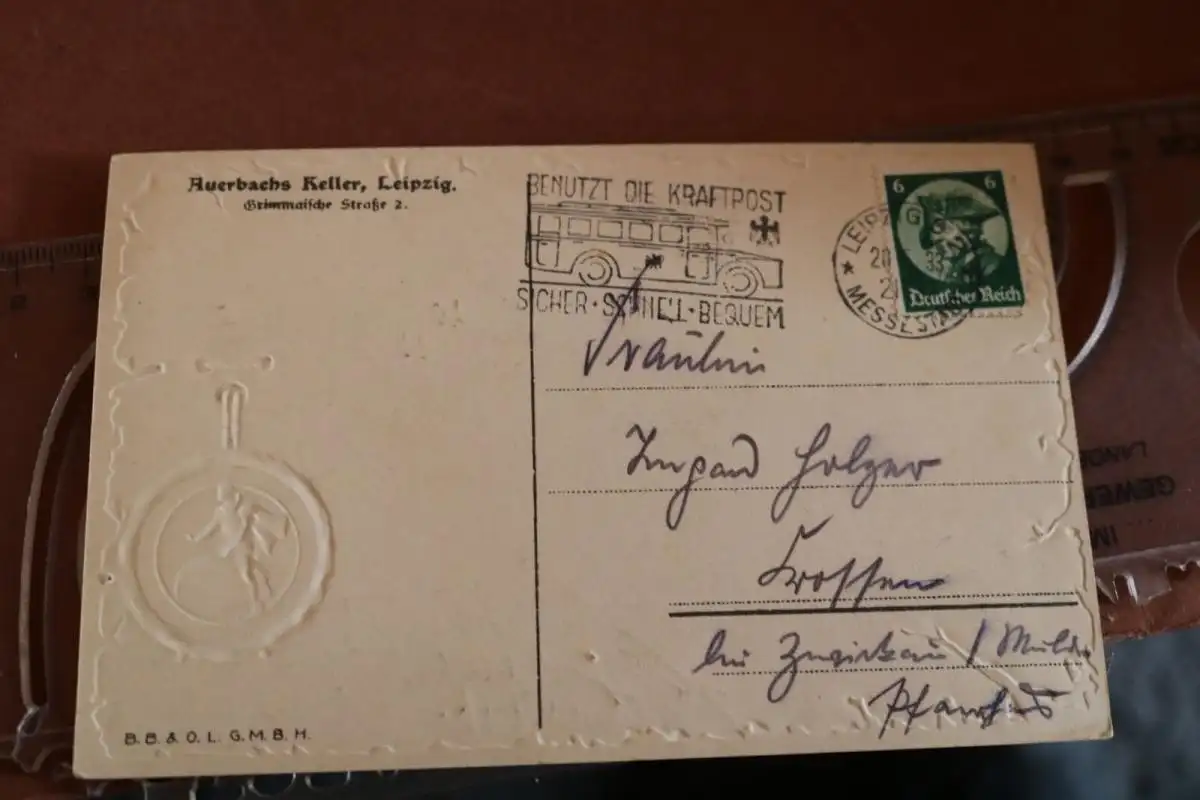 Auerbachs Keller, Leipzig.
Grimmaische Straße 2.
BENUTZT DIE KRAFTPOST
SICHER · SCHNELL · BEQUEM
LEIPZIG
20 33
MESSESTADT
6 6
Deutsches Reich
Fräulein
Irmgard Holzer
Crossen
bei Zwickau / Mulde
Pfarrhs
B. B. & O. L. G. M. B. H.
GEWE
LAND
IM